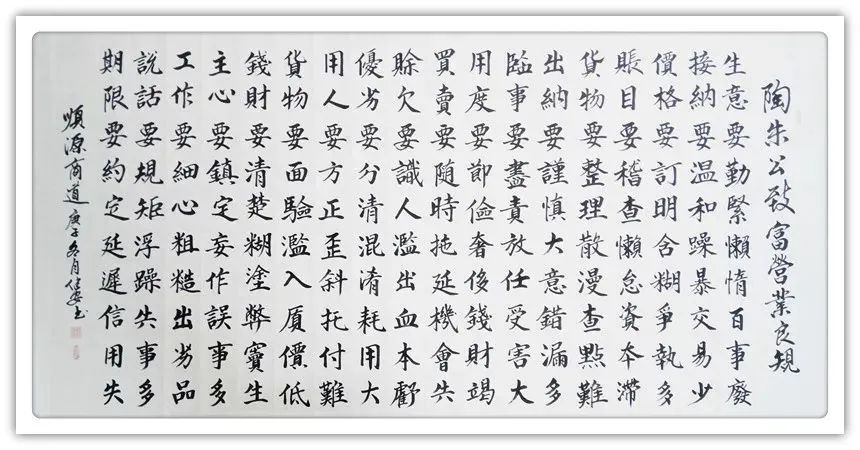 陶朱公致富營業良規
生意要勤緊懶惰百事廢
接納要温和躁暴交易少
價格要訂明含糊爭執多
賬目要稽查懶怠資本滯
貨物要整理散漫查點難
出納要謹慎大意錯漏多
臨事要盡責放任受害大
用度要節儉奢侈錢財竭
買賣要隨時拖延機會失
賒欠要識人濫出血本虧
優劣要分清混淆耗用大
用人要方正歪斜托付難
貨物要面驗濫入質價低
錢財要清楚糊塗弊竇生
主心要鎮定妄作誤事多
工作要細心粗糙出劣品
説話要規矩浮躁失事多
期限要約定延遲信用失
順源商道庚子冬月